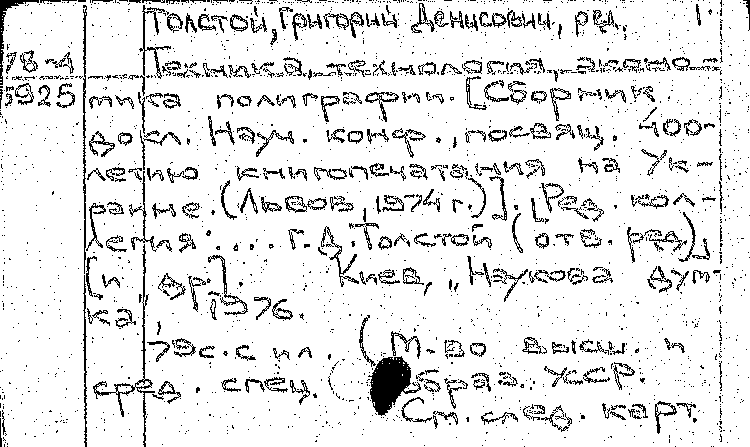 Толстой, Григорий Денисович, ред. 1.
78-4 Техника, технология, эконо-
5925 мика полиграфии. [Сборник
докл. Науч. конф., посвящ. 400-
летию книгопечатания на Ук-
раине. (Львов, 1974 г.)]. [Ред. кол-
легия: ... Г. Д. Толстой (отв. ред),
[и др]. Киев, „Наукова дум-
ка", 1976.
79 с. с ил. (М-во высш. и
сред. спец. образ. УССР.
См. след. карт.